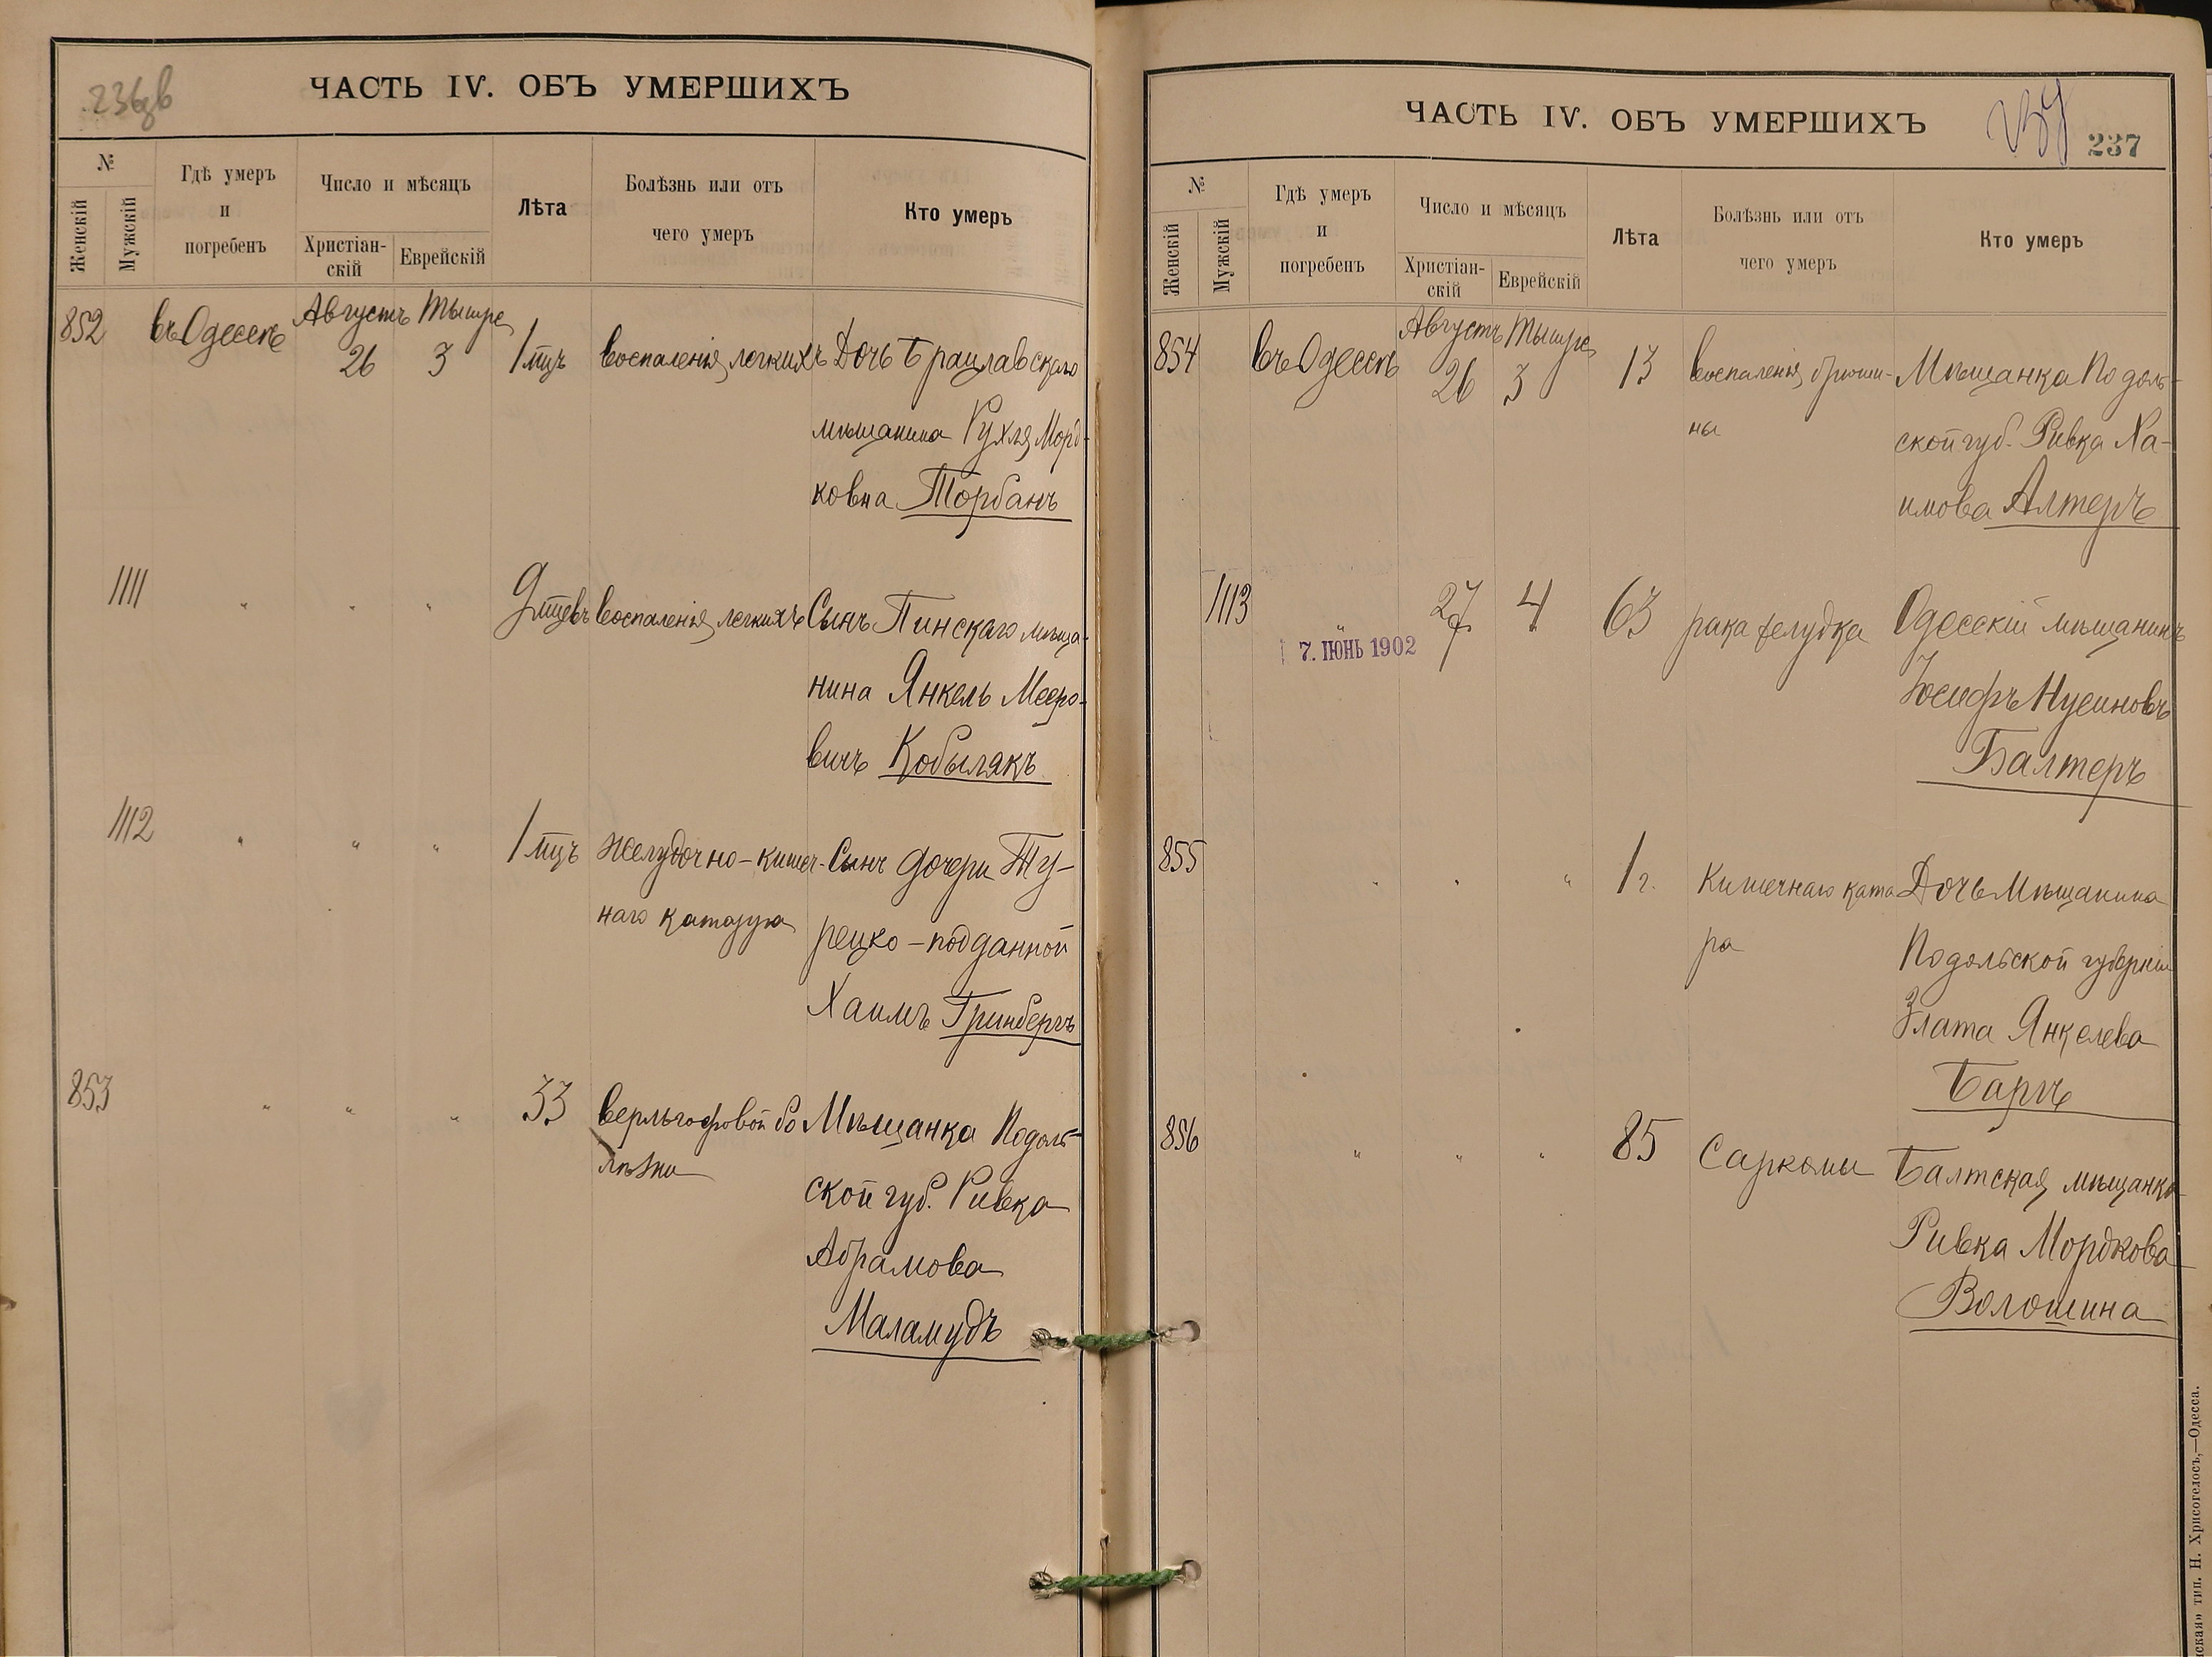 236зв
ЧАСТЬ IV. ОБЪ УМЕРШИХЪ
№
Женскій
Мужскій
Гдѣ умеръ
и
погребенъ
Число и мѣсяцъ
Христіан-
скій
Еврейскій
Лѣта
Болѣзнь или отъ
чего умеръ
Кто умеръ
852 въ Одессѣ Августъ 26 Тышре 3 1 мцъ воспаленія легкихъ Дочь Брацлавскаго
мѣщанина Рухля Морд-
ковна Торбанъ
1111 " " " 9 мцевъ воспаленія легкихъ Сынъ Пинскаго мѣща-
нина Янкель Мееро-
вичъ Кобылякъ
1112 " " " 1 мцъ Желудочно-кишеч- Сынъ дочери Ту-
наго катарра рецко-подданной
Хаимъ Гринбергъ
853 " " " 33 верльгофовой бо Мѣщанка Подоль-
лѣзни ской губ. Ривка
Абрамова
Маламудъ
ЧАСТЬ IV. ОБЪ УМЕРШИХЪ
237
№
Женскій
Мужскій
Гдѣ умеръ
и
погребенъ
Число и мѣсяцъ
Христіан-
скій
Еврейскій
Лѣта
Болѣзнь или отъ
чего умеръ
Кто умеръ
854 въ Одессѣ Августъ 26 Тышре 3 13 воспаленія брюши- Мѣщанка Подоль-
ны ской губ. Ривка Ха-
имова Алтеръ
1113 " 27 4 63 рака желудка Одесскій мѣщанинъ
7. ІЮНЬ 1902
Іосифъ Нусиновъ
Балтеръ
855 " " " 1 г. Кишечнаго ката Дочь Мѣщанина
ра Подольской губерніи
Злата Янкелева
Баръ
856 " " " 85 Саркомы Балтская мѣщанка
Ривка Мордкова
Волошина
ская» тип. Н. Хрисогелосъ,—Одесса.